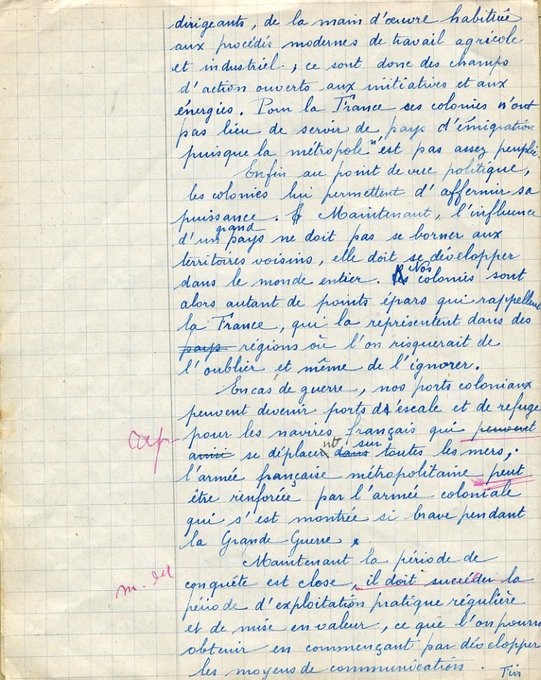 dirigeants, de la main d'œuvre habituée
aux procédés modernes de travail agricole
et industriel ; ce sont donc des champs
d'action ouverts aux initiatives et aux
énergies. Pour la France ses colonies n'ont
pas lieu de servir de pays d'émigration
puisque la métropole n'est pas assez peuplée
Enfin au point de vue politique,
les colonies lui permettent d'affermir sa
puissance. Maintenant, l'influence
d'un grand pays ne doit pas se borner aux
territoires voisins, elle doit se développer
dans le monde entier. Nos colonies sont
alors autant de points épars qui rappellent
la France, qui la représentent dans des
pays régions où l'on risquerait de
l'oublier et même de l'ignorer.
En cas de guerre, nos ports coloniaux
peuvent devenir ports d'escale et de refuge
pour les navires français qui peuvent
ainsi se déplacent dans sur toutes les mers ;
l'armée française métropolitaine peut
être renforcée par l'armée coloniale
qui s'est montrée si brave pendant
la Grande Guerre.
Maintenant la période de
m. dit
conquête est close, il doit succéder la
période d'exploitation pratique régulière
et de mise en valeur, ce que l'on pourra
obtenir en commençant par développer
les moyens de communication.